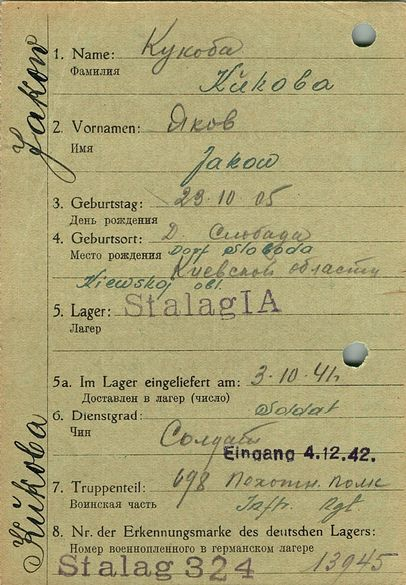 Jakow
Kŭkoba
1. Name: Кукоба
Фамилия
Kŭkoba
2. Vornamen: Яков
Имя
Jakow
3. Geburtstag: 23.10.05
День рождения
4. Geburtsort: Д. Слобада
Место рождения Dorf Sloboda
Киевской области
Kiewskoj obl.
5. Lager: Stalag IA
Лагер
5a. Im Lager eingeliefert am: 3.10.41
Доставлен в лагер (число)
6. Dienstgrad: Soldat
Чин Солдат
Eingang 4.12.42.
7. Truppenteil: 698 Пехотн. Полк
Воинская часть Inftr. Rgt.
8. Nr. der Erkennungsmarke des deutschen Lagers:
Номер военнопленного в германском лагере
Stalag 324 13945